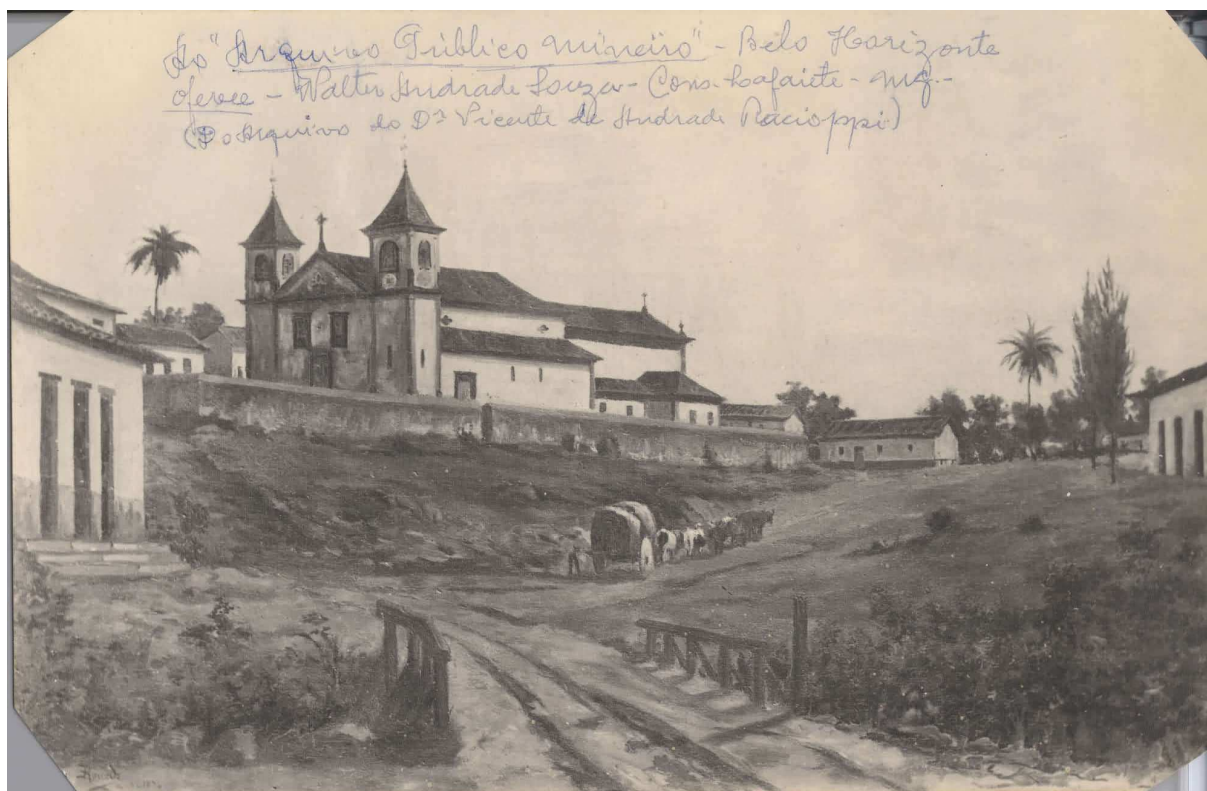 Ao "Arquivo Público Mineiro" - Belo Horizonte
oferece - Walter Andrade Souza - Cons. Lafaiete - MG.-
(Do Arquivo do Dr Vicente de Andrade Racioppi)